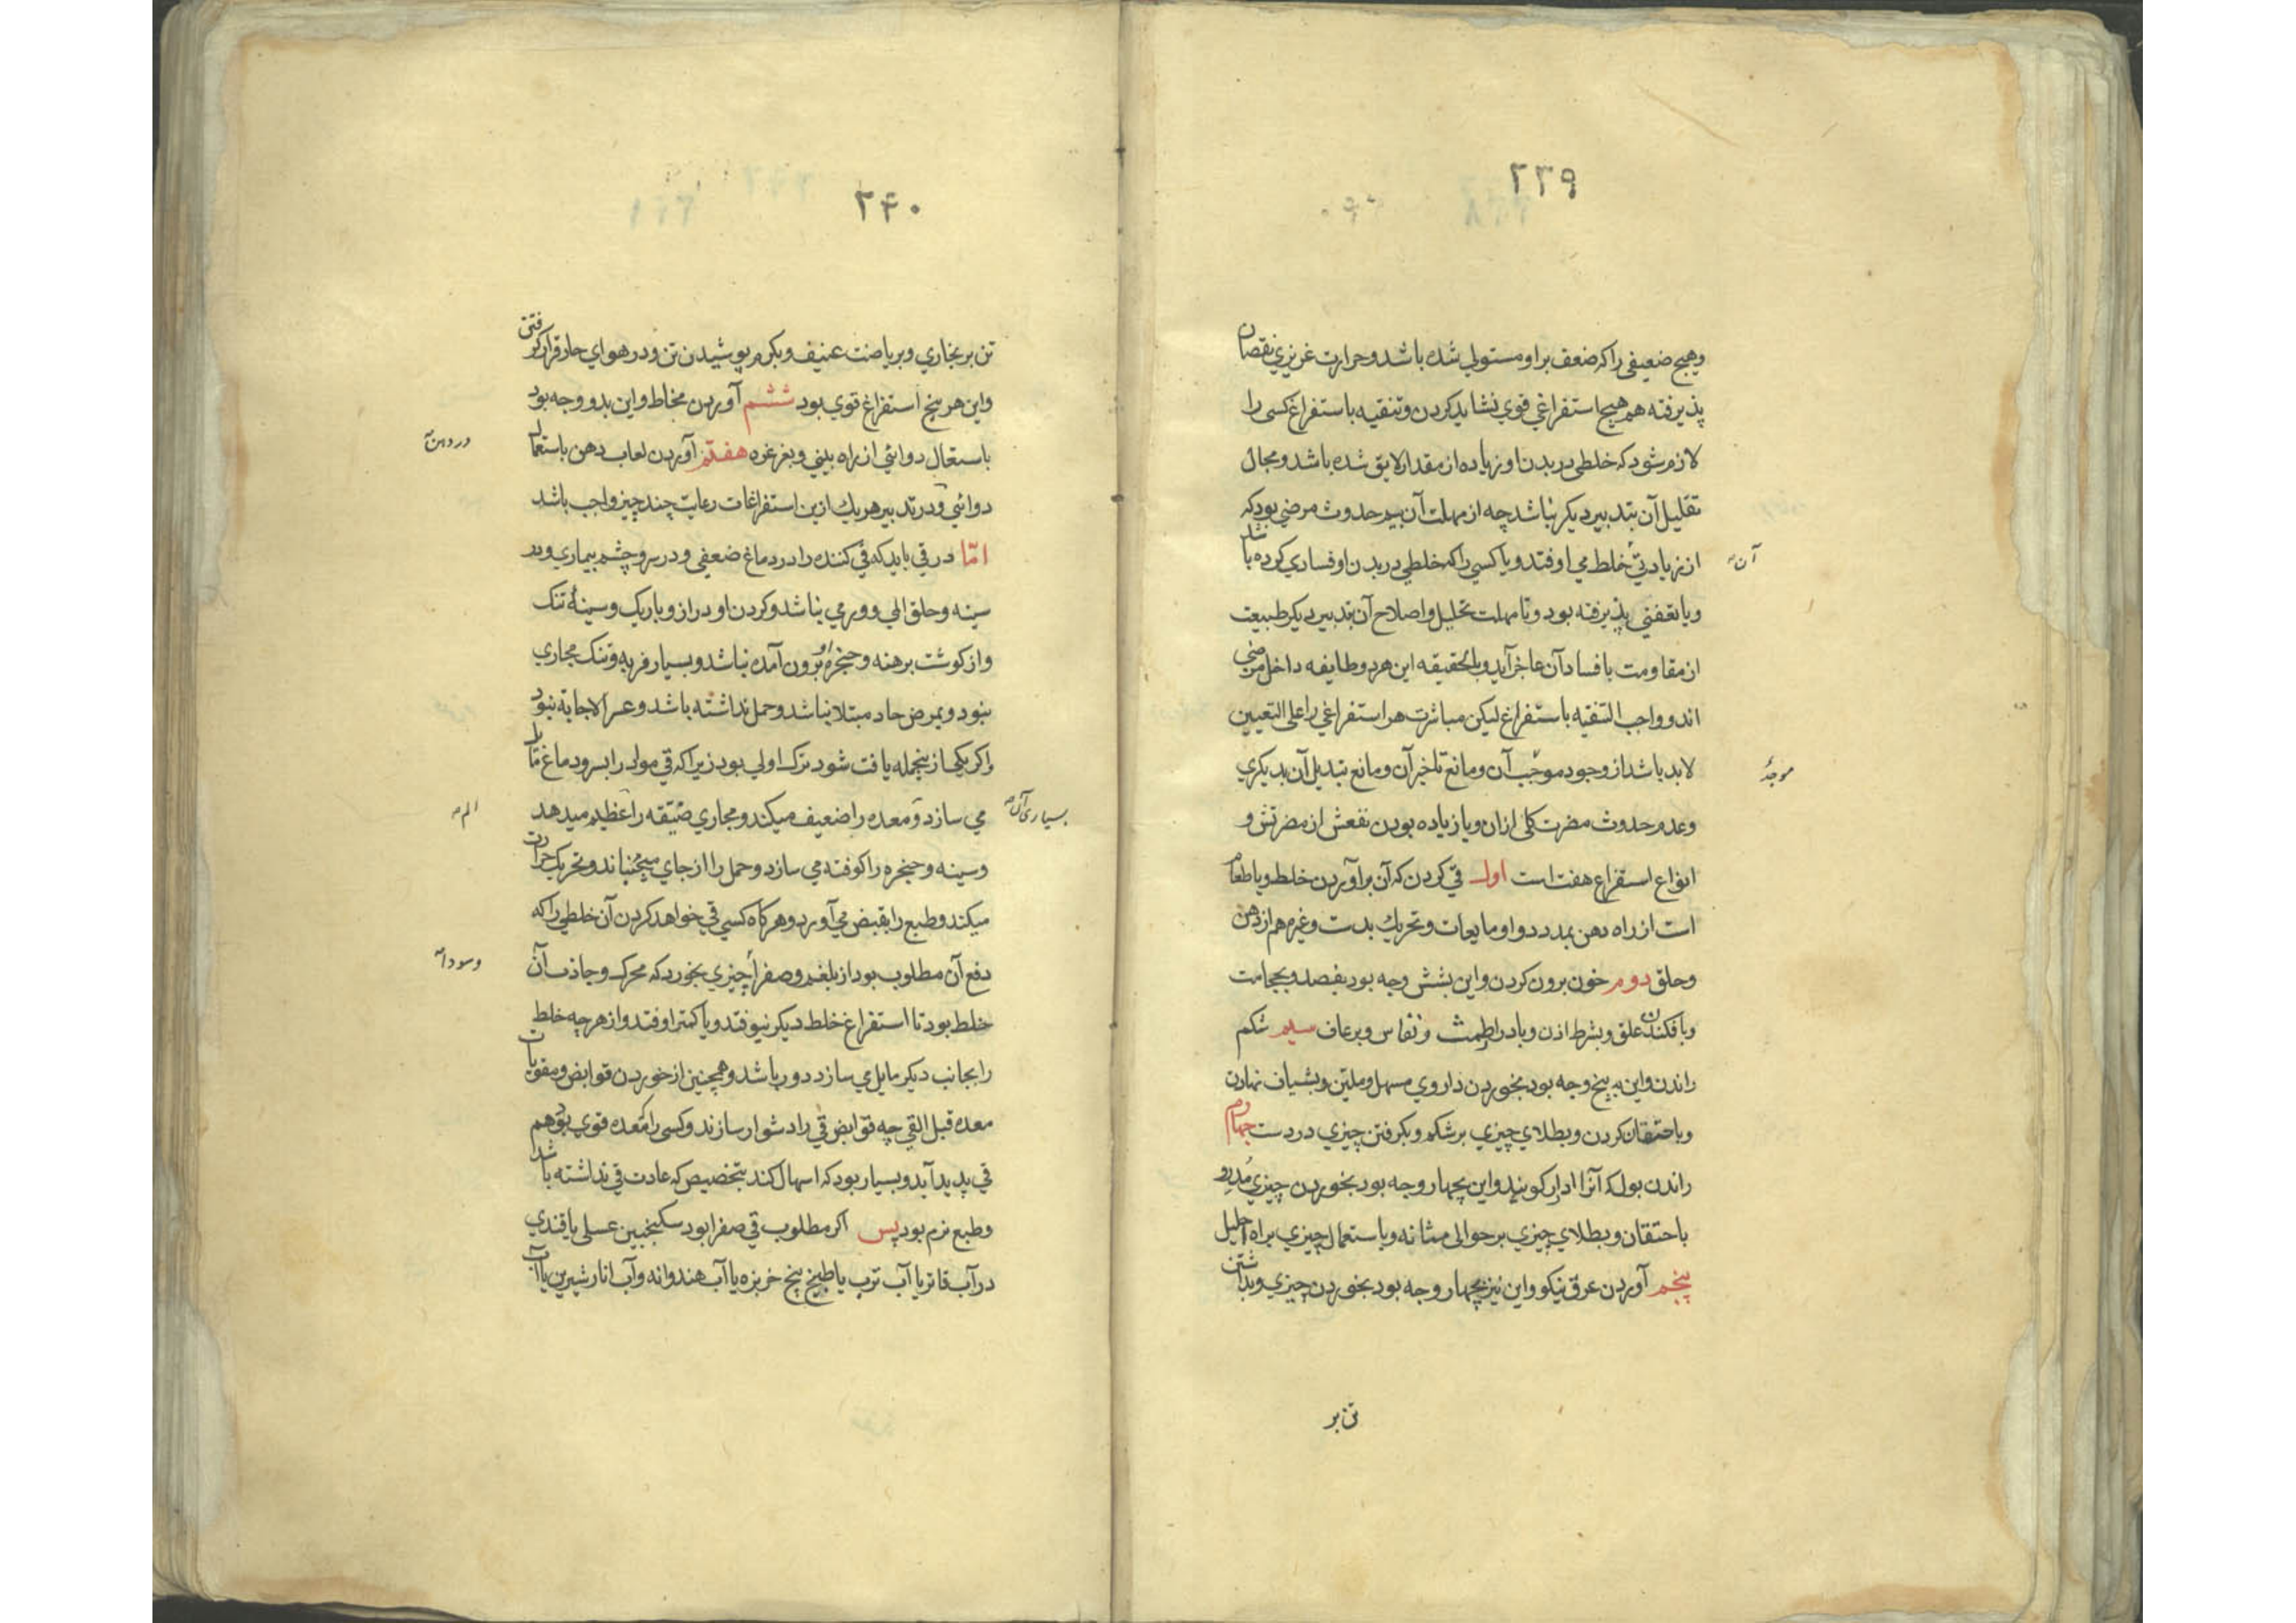 ۲۳۹
وهیچ ضعیفی را که ضعف بر او مستولی شده باشد و حرارت غریزی نقصان
پذیرفته هم هیچ استفراغی قوی نشاید کردن و تنقیه باستفراغ کسی را
لازم شود که خلطی در بدن او زیاده از مقدار لایق شده باشد و مجال
تقلیل آن بتدبیر دیکر نباشد چه از مهلت آن بیم حدوث مرضی بود که
از زیادتی خلط می اوفتد و یا کسی را که خلطی در بدن او فسادی کرده باشد
آن
و یا تعفنی پذیرفته بود و تا مهلت تحلیل و اصلاح آن بتدبیر دیکر طبیعت
از مقاومت با فساد آن عاجز آید و بالحقیقه این هر دو طایفه داخل مرضی
اند و واجب التنقیه باستفراغ لیکن مباشرت هر استفراغی را علی التعیین
لابد باشد از وجود موجب آن و مانع تاخیر آن و مانع تبدیل آن بدیکری
موجبهٔ
وعدم حدوث مضرت کلی ازان و یا زیاده بودن نفعش از مضرتش و
انواع استفراغ هفت است اول قی کردن که آن برآوردن خلط و یا طعام
است از راه دهن بمدد دوا و مایعات و تحریک بدست و غیرهم از دهن
و حلق دوم خون برون کردن و این بشش وجه بود بفصد و بحجامت
و بافکندن علق و بشرط اذن و بادرار طمث و نفاس و برعاف سیم شکم
راندن و این به پنج وجه بود بخوردن داروی مسهل و ملین و بشیاف نهادن
و باحتقان کردن و بطلای چیزی بر شکم و بکرفتن چیزی در دست چهارم
راندن بول که آنرا ادرار کویند و این بچهار وجه بود بخوردن چیزی مدر و
باحتقان و بطلای چیزی بر حوالی مثانه و باستعمال چیزی براه احلیل
پنجم آوردن عرق نیکو و این نیز بچهار وجه بود بخوردن چیزی و بداشتن
تن بر
۲۴۰
تن بر بخاری و بریاضت عنیف و بکرم پوشیدن تن و در هوای حار قرار کرفتن
و این هر پنج استفراغ قوی بود ششم آوردن مخاط و این بدو وجه بود
باستعمال دوائی از راه بینی و بغرغره هفتم آوردن لعاب دهن باستعمال
در دهن
دوائی و در تدبیر هر یک ازین استفراغات رعایت چند چیز واجب باشد
امّا در قی باید که قی کننده را در دماغ ضعفی و در سر و چشم بیماری و در
سینه و حلق المی و ورمی نباشد و کردن او دراز و باریک و سینهٔ تنک
و از کوشت برهنه و حنجره او برون آمده نباشد و بسیار فربه و تنک مجاری
نبود و بمرض حاد مبتلا نباشد و حمل نداشته باشد و عسر الاجابه نبود
و اکر یکی از ینجمله یافت شود ترک اولی بود زیرا که قی مواد را بسر و دماغ مایل
می سازد و معده را ضعیف میکند و مجاری ضیقه را عظیم میدهد
بسیاری آن
الم
و سینه و حنجره را کوفته می سازد و حمل را از جای میجنباند و تحریک حرارت
میکند و طبع را بقبض می آورد و هر کاه کسی قی خواهد کردن آن خلطی را که
دفع آن مطلوب بود از بلغم و صفرا چیزی بخورد که محرک و جاذب آن
و سودا
خلط بود تا استفراغ خلط دیکر نیوفتد و یا کمتر اوفتد و از هر چه خلط
را بجانب دیکر مایل می سازد دور باشد و همچنین از خوردن قوابض و مقویات
معده قبل القی چه قوابض قی را دشوار سازند و کسی را که معده قوی بود هم
قی پدید آید و بسیار بود که اسهال کند بتخصیص که عادت قی نداشته باشد
و طبع نرم بود پس اکر مطلوب قی صفرا بود سکنجبین عسلی یا قندی
در آب فاتر یا آب ترب یا طبیخ بیخ خربزه یا آب هندوانه و آب انار شیرین یا آب